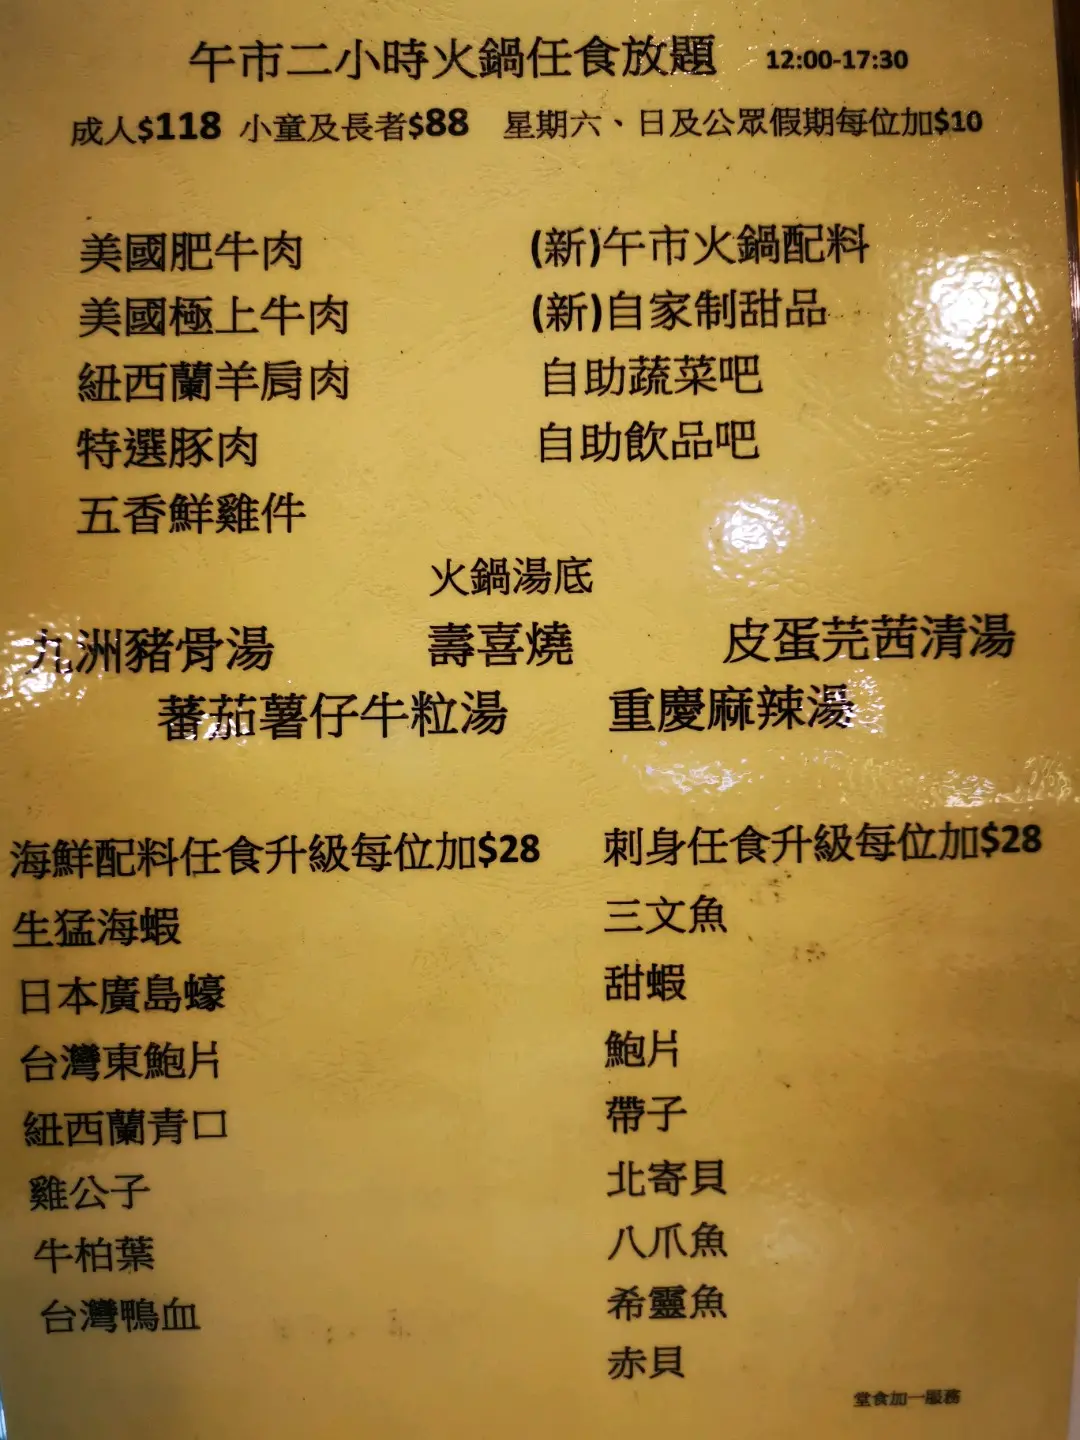 午市二小時火鍋任食放題 12:00-17:30
成人$118 小童及長者$88 星期六、日及公眾假期每位加$10
美國肥牛肉
美國極上牛肉
紐西蘭羊肩肉
特選豚肉
五香鮮雞件
(新)午市火鍋配料
(新)自家制甜品
自助蔬菜吧
自助飲品吧
火鍋湯底
九洲豬骨湯 壽喜燒 皮蛋芫茜清湯
蕃茄薯仔牛粒湯 重慶麻辣湯
海鮮配料任食升級每位加$28
生猛海蝦
日本廣島蠔
台灣東鮑片
紐西蘭青口
雞公子
牛柏葉
台灣鴨血
刺身任食升級每位加$28
三文魚
甜蝦
鮑片
帶子
北寄貝
八爪魚
希靈魚
赤貝
堂食加一服務